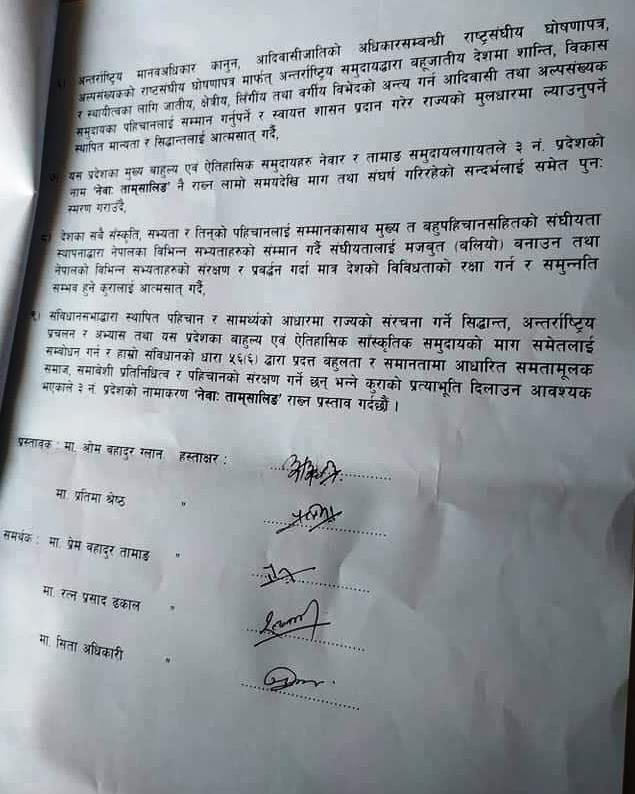 ६) अन्तर्राष्ट्रिय मानवअधिकार कानुन, आदिवासीजातिको अधिकारसम्बन्धी राष्ट्रसंघीय घोषणापत्र,
अल्पसंख्यकको राष्टसंघीय घोषणापत्र मार्फत् अन्तर्राष्ट्रिय समुदायद्वारा बहूजातीय देशमा शान्ति, विकास
र स्थायीत्वका लागि जातीय, क्षेत्रीय, लिंगीय तथा वर्गीय विभेदको अन्त्य गर्न आदिवासी तथा अल्पसंख्यक
समुदायका पहिचानलाई सम्मान गर्नुपर्ने र स्वायत्त शासन प्रदान गरेर राज्यको मुलधारमा ल्याउनुपर्ने
स्थापित मान्यता र सिद्धान्तलाई आत्मसात् गर्दै,
७) यस प्रदेशका मुख्य बाहुल्य एवं ऐतिहासिक समुदायहरु नेवार र तामाङ समुदायलगायतले ३ नं. प्रदेशको
नाम 'नेवाः ताम्सालिङ' नै राख्न लामो समयदेखि माग तथा संघर्ष गरिरहेको सन्दर्भलाई समेत पुनः
स्मरण गराउँदै,
८) देशका सबै संस्कृति, सभ्यता र तिनको पहिचानलाई सम्मानकासाथ मुख्य त बहुपहिचानसहितको संघीयता
स्थापनाद्वारा नेपालका विभिन्न सभ्यताहरुको सम्मान गर्दै संघीयतालाई मजबुत (बलियो) बनाउन तथा
नेपालको विभिन्न सभ्यताहरुको संरक्षण र प्रबर्द्धन गर्दा मात्र देशको विविधताको रक्षा गर्न र समुन्नति
सम्भव हुने कुरालाई आत्मसात् गर्दै,
९) संविधानसभाद्वारा स्थापित पहिचान र सामर्थ्यको आधारमा राज्यको संरचना गर्ने सिद्धान्त, अन्तर्राष्ट्रिय
प्रचलन र अभ्यास तथा यस प्रदेशका बाहुल्य एवं ऐतिहासिक सांस्कृतिक समुदायको माग समेतलाई
सम्बोधन गर्न र हाम्रो संविधानको धारा ५६(६) द्वारा प्रदत्त बहुलता र समानतामा आधारित समतामूलक
समाज, समावेशी प्रतिनिधित्व र पहिचानको संरक्षण गर्ने छन् भन्ने कुराको प्रत्याभूति दिलाउन आवश्यक
भएकाले ३ नं. प्रदेशको नामाकरण 'नेवाः ताम्सालिङ' राख्न प्रस्ताव गर्दछौं ।
प्रस्तावक : मा. ओम बहादुर ग्लान हस्ताक्षर :
मा. प्रतिमा श्रेष्ठ "
समर्थक : मा. प्रेम बहादुर तामाङ "
मा. रत्न प्रसाद ढकाल "
मा. सिता अधिकारी "